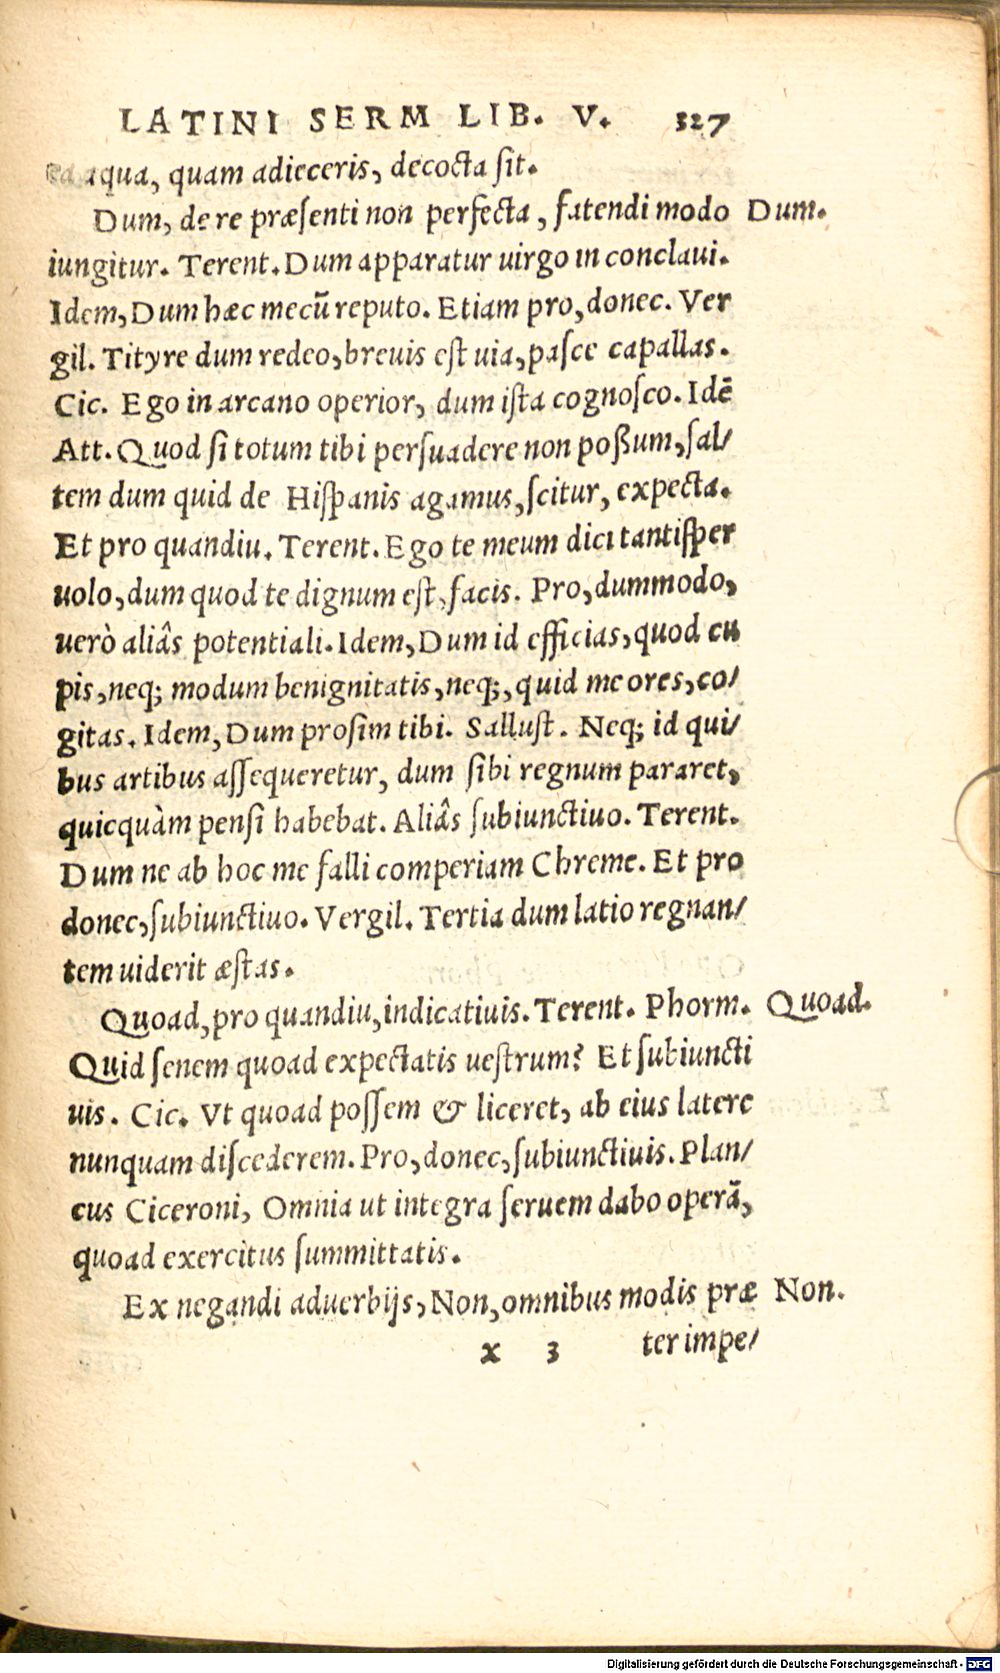 LATINI SERM LIB. V. 327
ea aqua, quam adieceris, decocta sit.
Dum, de re præsenti non perfecta, fatendi modo Dum.
iungitur. Terent. Dum apparatur uirgo in conclaui.
Idem, Dum hæc mecū reputo. Etiam pro, donec. Ver
gil. Tityre dum redeo, breuis est uia, pasce capallas.
Cic. Ego in arcano operior, dum ista cognosco. Idē
Att. Quod si totum tibi persuadere non poßum, sal/
tem dum quid de Hispanis agamus, scitur, expecta.
Et pro quandiu. Terent. Ego te meum dici tantisper
uolo, dum quod te dignum est, facis. Pro, dummodo,
uerò aliâs potentiali. Idem, Dum id efficias, quod cu
pis, neq; modum benignitatis, neq;, quid me ores, co/
gitas. Idem, Dum prosim tibi. Sallust. Neq; id qui/
bus artibus assequeretur, dum sibi regnum pararet,
quicquàm pensi habebat. Aliâs subiunctiuo. Terent.
Dum ne ab hoc me falli comperiam Chreme. Et pro
donec, subiunctiuo. Vergil. Tertia dum latio regnan/
tem uiderit æstas.
Quoad, pro quandiu, indicatiuis. Terent. Phorm. Quoad.
Quid senem quoad expectatis uestrum? Et subiuncti
uis. Cic. Vt quoad possem & liceret, ab eius latere
nunquam discederem. Pro, donec, subiunctiuis. Plan/
cus Ciceroni, Omnia ut integra seruem dabo operā,
quoad exercitus summittatis.
Ex negandi aduerbijs, Non, omnibus modis præ Non.
x 3 ter impe/
Digitalisierung gefördert durch die Deutsche Forschungsgemeinschaft - DFG